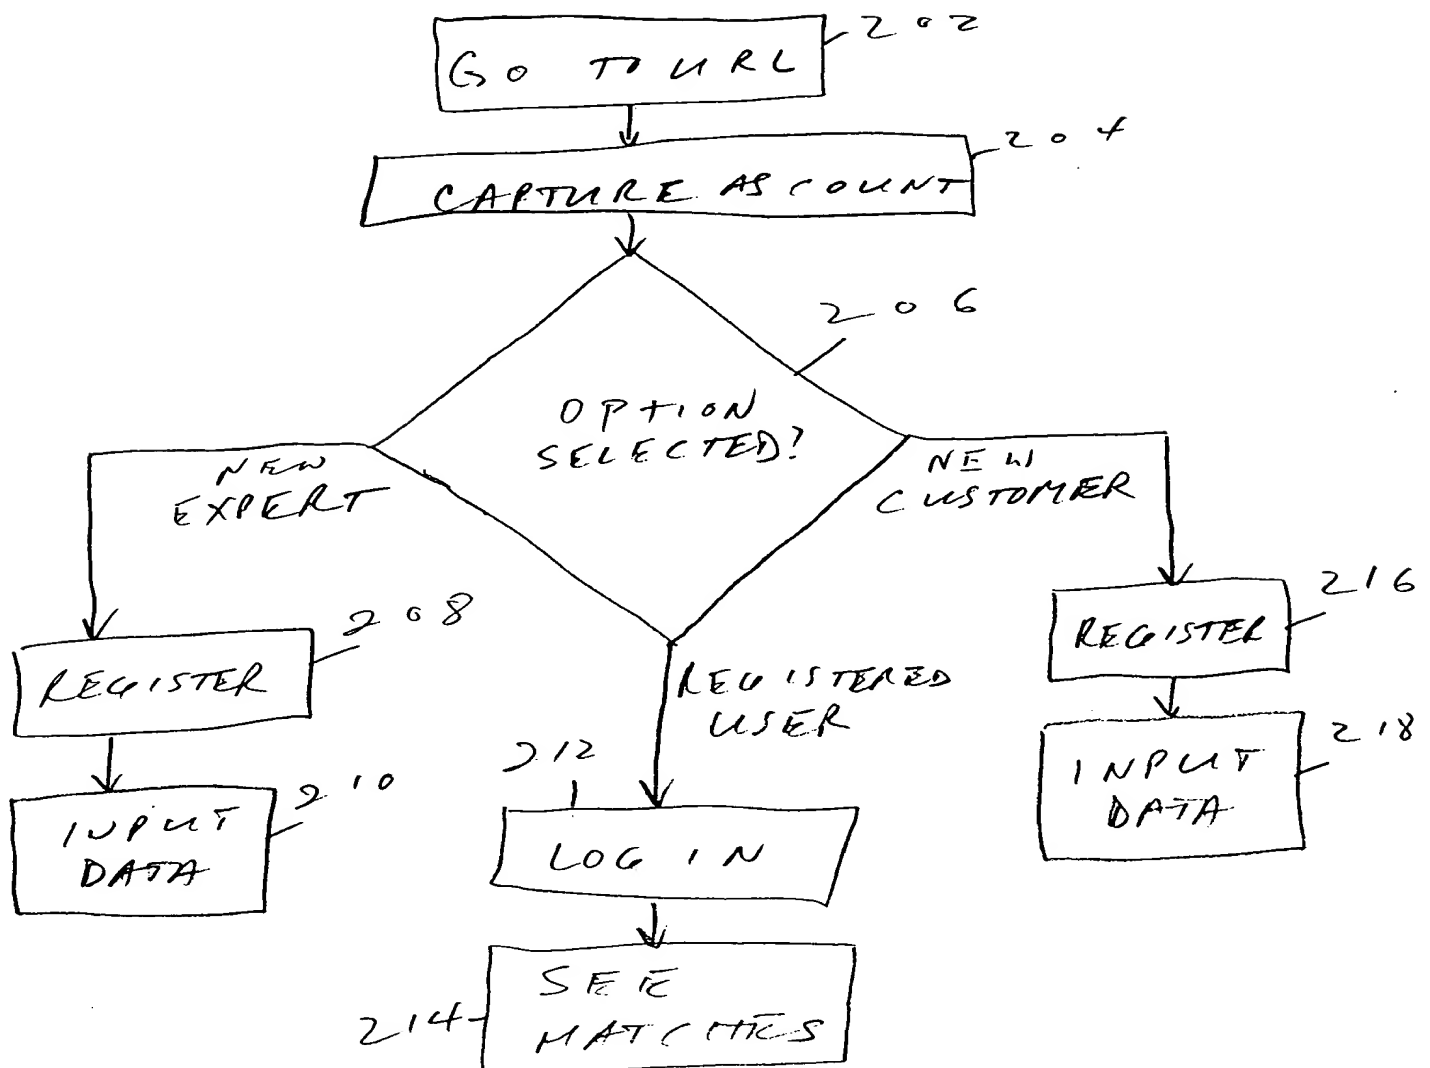 GO TO URL
202
CAPTURE AS COUNT
204
206
OPTION
SELECTED?
NEW
EXPERT
NEW
CUSTOMER
208
REGISTER
216
REGISTER
REGISTERED
USER
210
INPUT
DATA
212
LOG IN
218
INPUT
DATA
214
SEE
MATCHES